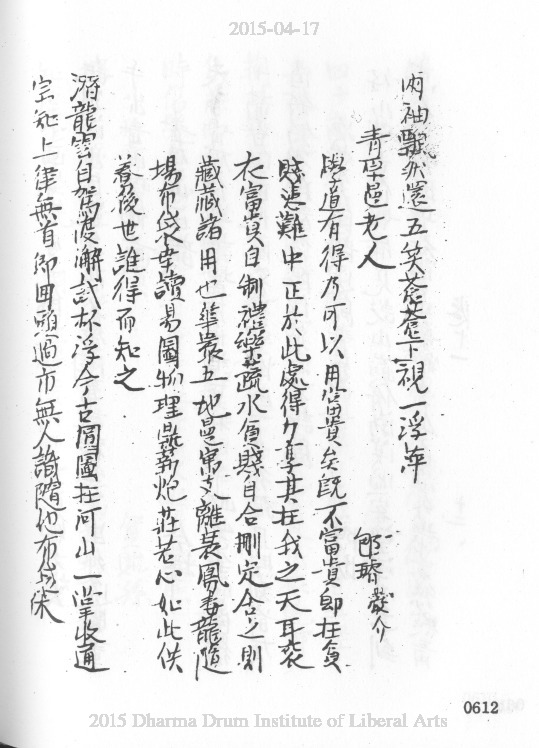 2015-04-17
兩袖飄然還五笑蒼蒼下視一浮萍
青孚邑老人
學道有得乃可以用富貴矣既不富貴即在貧
賤患難中正於此處得力享其在我之天耳袞
衣富貴自制禮樂蔬水貧賤自合刪定舍之則
藏藏諸用也華嚴五地曼寓支離裴鳳毒龍隨
場布袋韋讀易圖物理鼎薪炮莊苦心如此佚
後世誰得而知之
潛龍雲自駕渡澥試杯浮今古圖在河山一掌收通
宗知上律無首即回頭過市無人識隨他布
0612
2015 Dharma Drum Institute of Liberal Arts